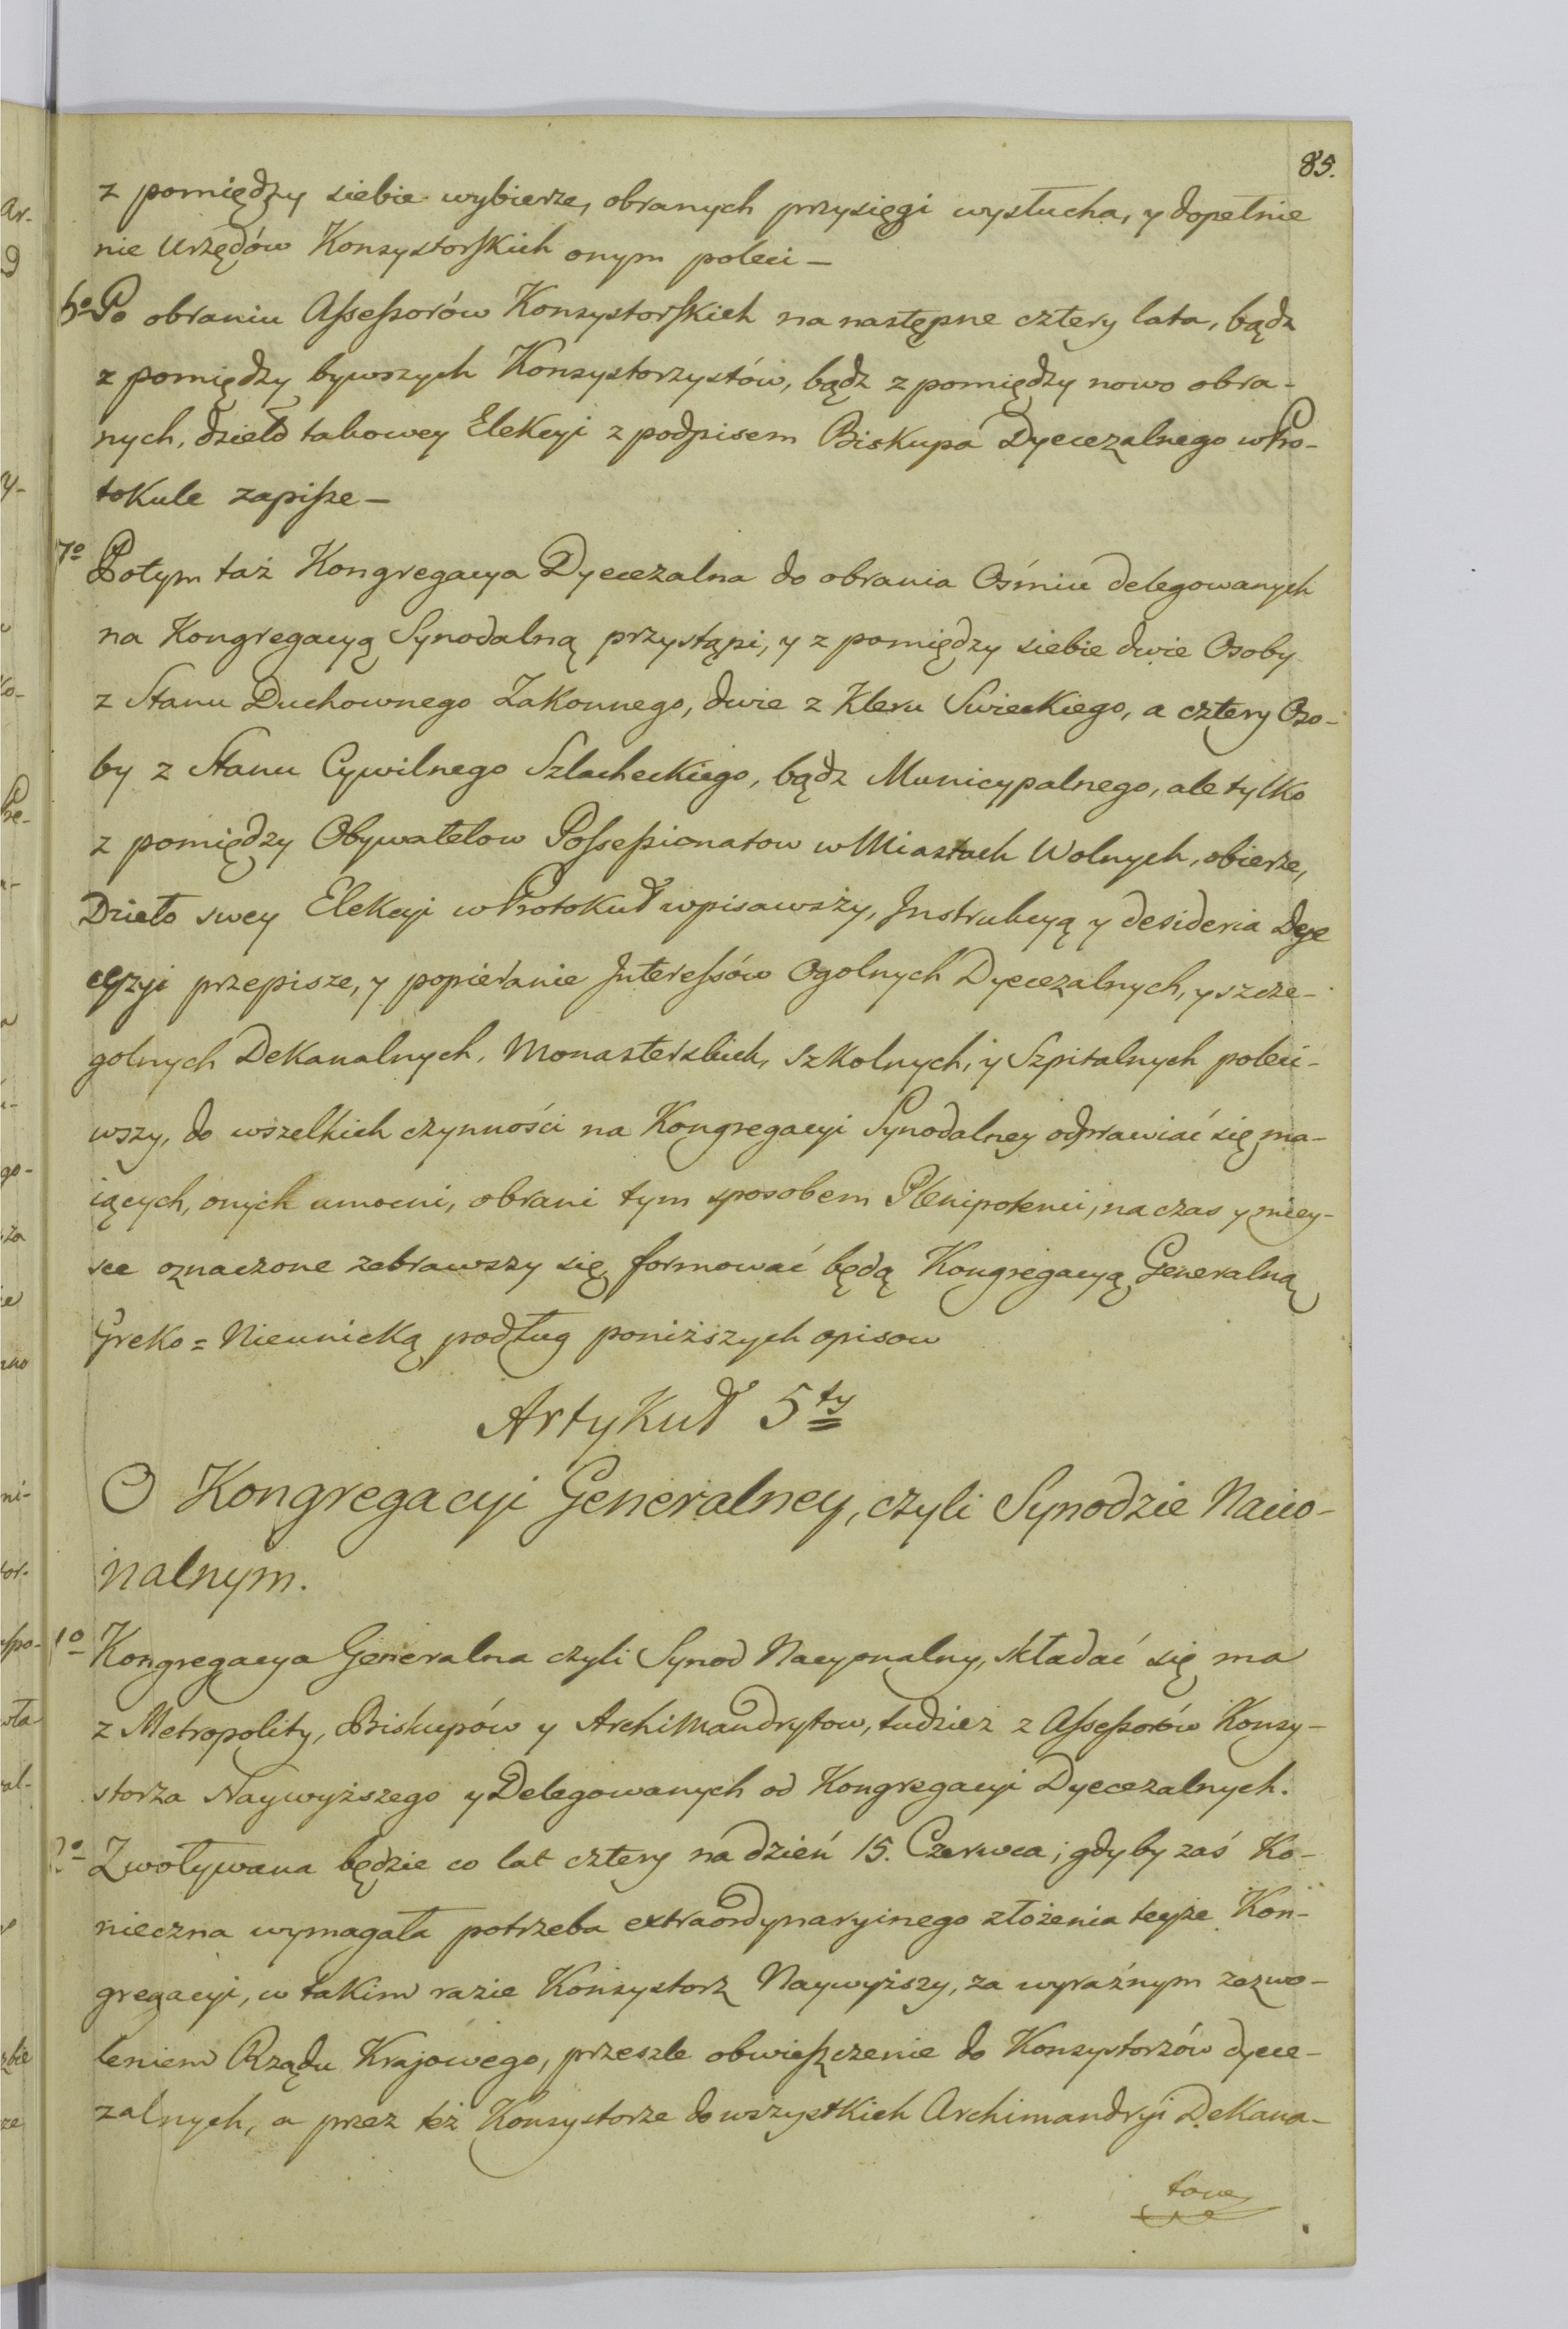 85.
z pomiędzy siebie wybierze, obranych przysięgi wysłucha, y dopełnie
nie Urzędów Konsystorskich onym poleci —
6º Po obraniu Assessorów Konsystorskich na następne cztery lata, bądz
z pomiędzy bywszych Konsystorzystów, bądz z pomiędzy nowo obra-
nych, dzieło takowey Elekcyi z podpisem Biskupa Dyecezalnego w Pro-
tokule zapisze —
7º Potym taż Kongregacya Dyecezalna do obrania Ośmiu delegowanych
na Kongregacyą Synodalną przystąpi, y z pomiędzy siebie dwie Osoby
z Stanu Duchownego Zakonnego, dwie z Kleru Swieckiego, a cztery Oso-
by z Stanu Cywilnego Szlacheckiego, bądz Municypalnego, ale tylko
z pomiędzy Obywatelow Possessionatow w Miastach Wolnych, obierze,
Dzieło swey Elekcyi w Protokuł wpisawszy, Instrukcyą y desideria Dye
cezyi przepisze, y popieranie Interessów Ogolnych Dyecezalnych, y szcze-
golnych Dekanalnych, Monasterskich, Szkolnych, y Szpitalnych poleci-
wszy, do wszelkich czynności na Kongregacyi Synodalney odprawiać się ma-
iących, onych umocni, obrani tym sposobem Plenipotenci, na czas y miey-
sce oznaczone zebrawszy się, formować będą Kongregacyą Generalną
Greko = Nieunicką podług poniższych opisow
Artykuł 5ty
O Kongregacyi Generalney, czyli Synodzie Nacio-
nalnym.
1º Kongregacya Generalna czyli Synod Nacyonalny, składać się ma
z Metropolity, Biskupów y Archimandrytow, tudzież z Assessorów Konsy-
storza Naywyższego y Delegowanych od Kongregacyi Dyecezalnych.
2º Zwoływana będzie co lat cztery na dzień 15. Czerwca; gdyby zaś Ko-
nieczna wymagała potrzeba extraordynaryinego złożenia teyże Kon-
gregacyi, w takim razie Konsystorz Naywyższy, za wyraźnym zezwo-
leniem Rządu Krajowego, przeszle obwieszczenie do Konsystorzów dyece-
zalnych, a przez też Konsystorze do wszystkich Archimandryi Dekana-
tow